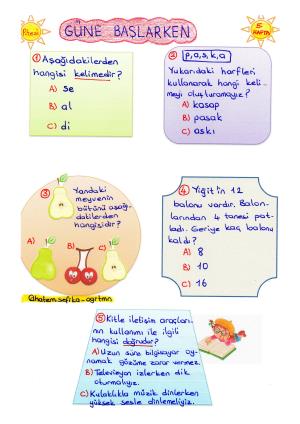 Pitesi
GÜNE BAŞLARKEN
5.
HAFTA
① Aşağıdakilerden
hangisi kelimedir?
A) se
B) al
C) di
② p, a, s, k, a
Yukarıdaki harfleri
kullanarak hangi keli-
meyi oluşturamayız?
A) kasap
B) pasak
C) askı
③ Yandaki
meyvenin
bütünü aşağı-
dakilerden
hangisidir?
A)
B)
C)
@hatem.sefika_ogrtmn
④ Yiğit'in 12
balonu vardır. Balon-
larından 4 tanesi pat-
ladı. Geriye kaç balonu
kaldı?
A) 8
B) 10
C) 16
⑤ Kitle iletişim araçları-
nın kullanımı ile ilgili
hangisi doğrudur?
A) Uzun süre bilgisayar oy-
namak gözüme zarar vermez.
B) Televizyon izlerken dik
oturmalıyız.
C) Kulaklıkla müzik dinlerken
yüksek sesle dinlemeliyiz.